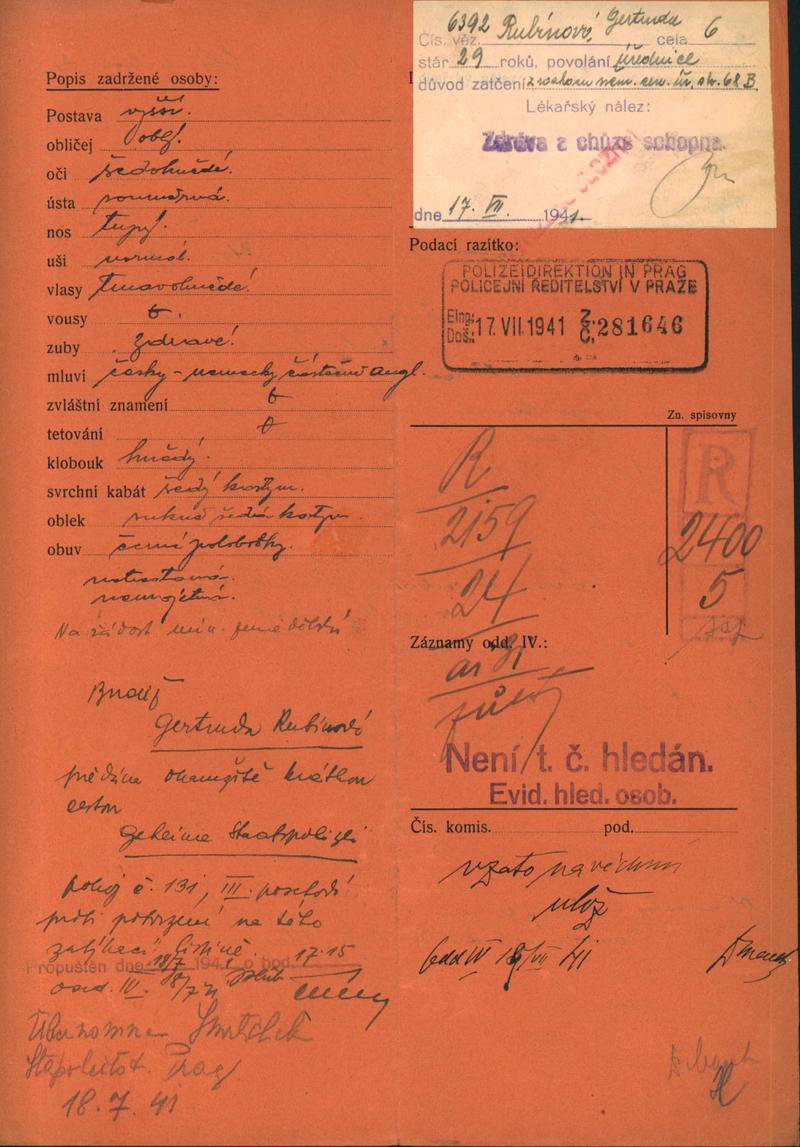 Popis zadržené osoby:
Postava vyšší.
obličej obl.
oči šedohnědé.
ústa souměrná.
nos tupý.
uši normál.
vlasy tmavohnědé.
vousy 0.
zuby zdravé.
mluví česky - německy částečně angl.
zvláštní znamení 0
tetování 0
klobouk hnědý.
svrchní kabát šedý kostym.
oblek sukně šedá kostym.
obuv černé polobotky.
netrestaná.
nemajetná.
Na žádost min. zemědělství
Budiž
Gertruda Rubínová
předána okamžitě krátkou
cestou
Geheime Staatspolizei
pokoj č. 131, III. poschodí
proti potvrzení na této
zatýkací listině.
Propuštěn dne 18/7 1941 o hod. 17.15
odd. IV. 18/7 41
Übernommen
Stapoleitst. Prag
18.7.41
6392 Rubínová Gertruda
Čís. věz. cela 6
stár 29 roků, povolání úřednice
důvod zatčení z rozkazu něm. str. 68 B.
Lékařský nález:
Zdráva a chůze schopna.
dne 17. VII. 1941.
Podací razítko:
POLIZEIDIREKTION IN PRAG
POLICEJNÍ ŘEDITELSTVÍ V PRAZE
Elng.: Došl.: 17.VII.1941 Z. Č. 281646
Zn. spisovny
R
2159
24
R
2400
5
Záznamy odd. IV.:
Není t. č. hledán.
Evid. hled. osob.
Čís. komis. pod.
vzato na vědomí
ulož
odd IV 18/VII 41